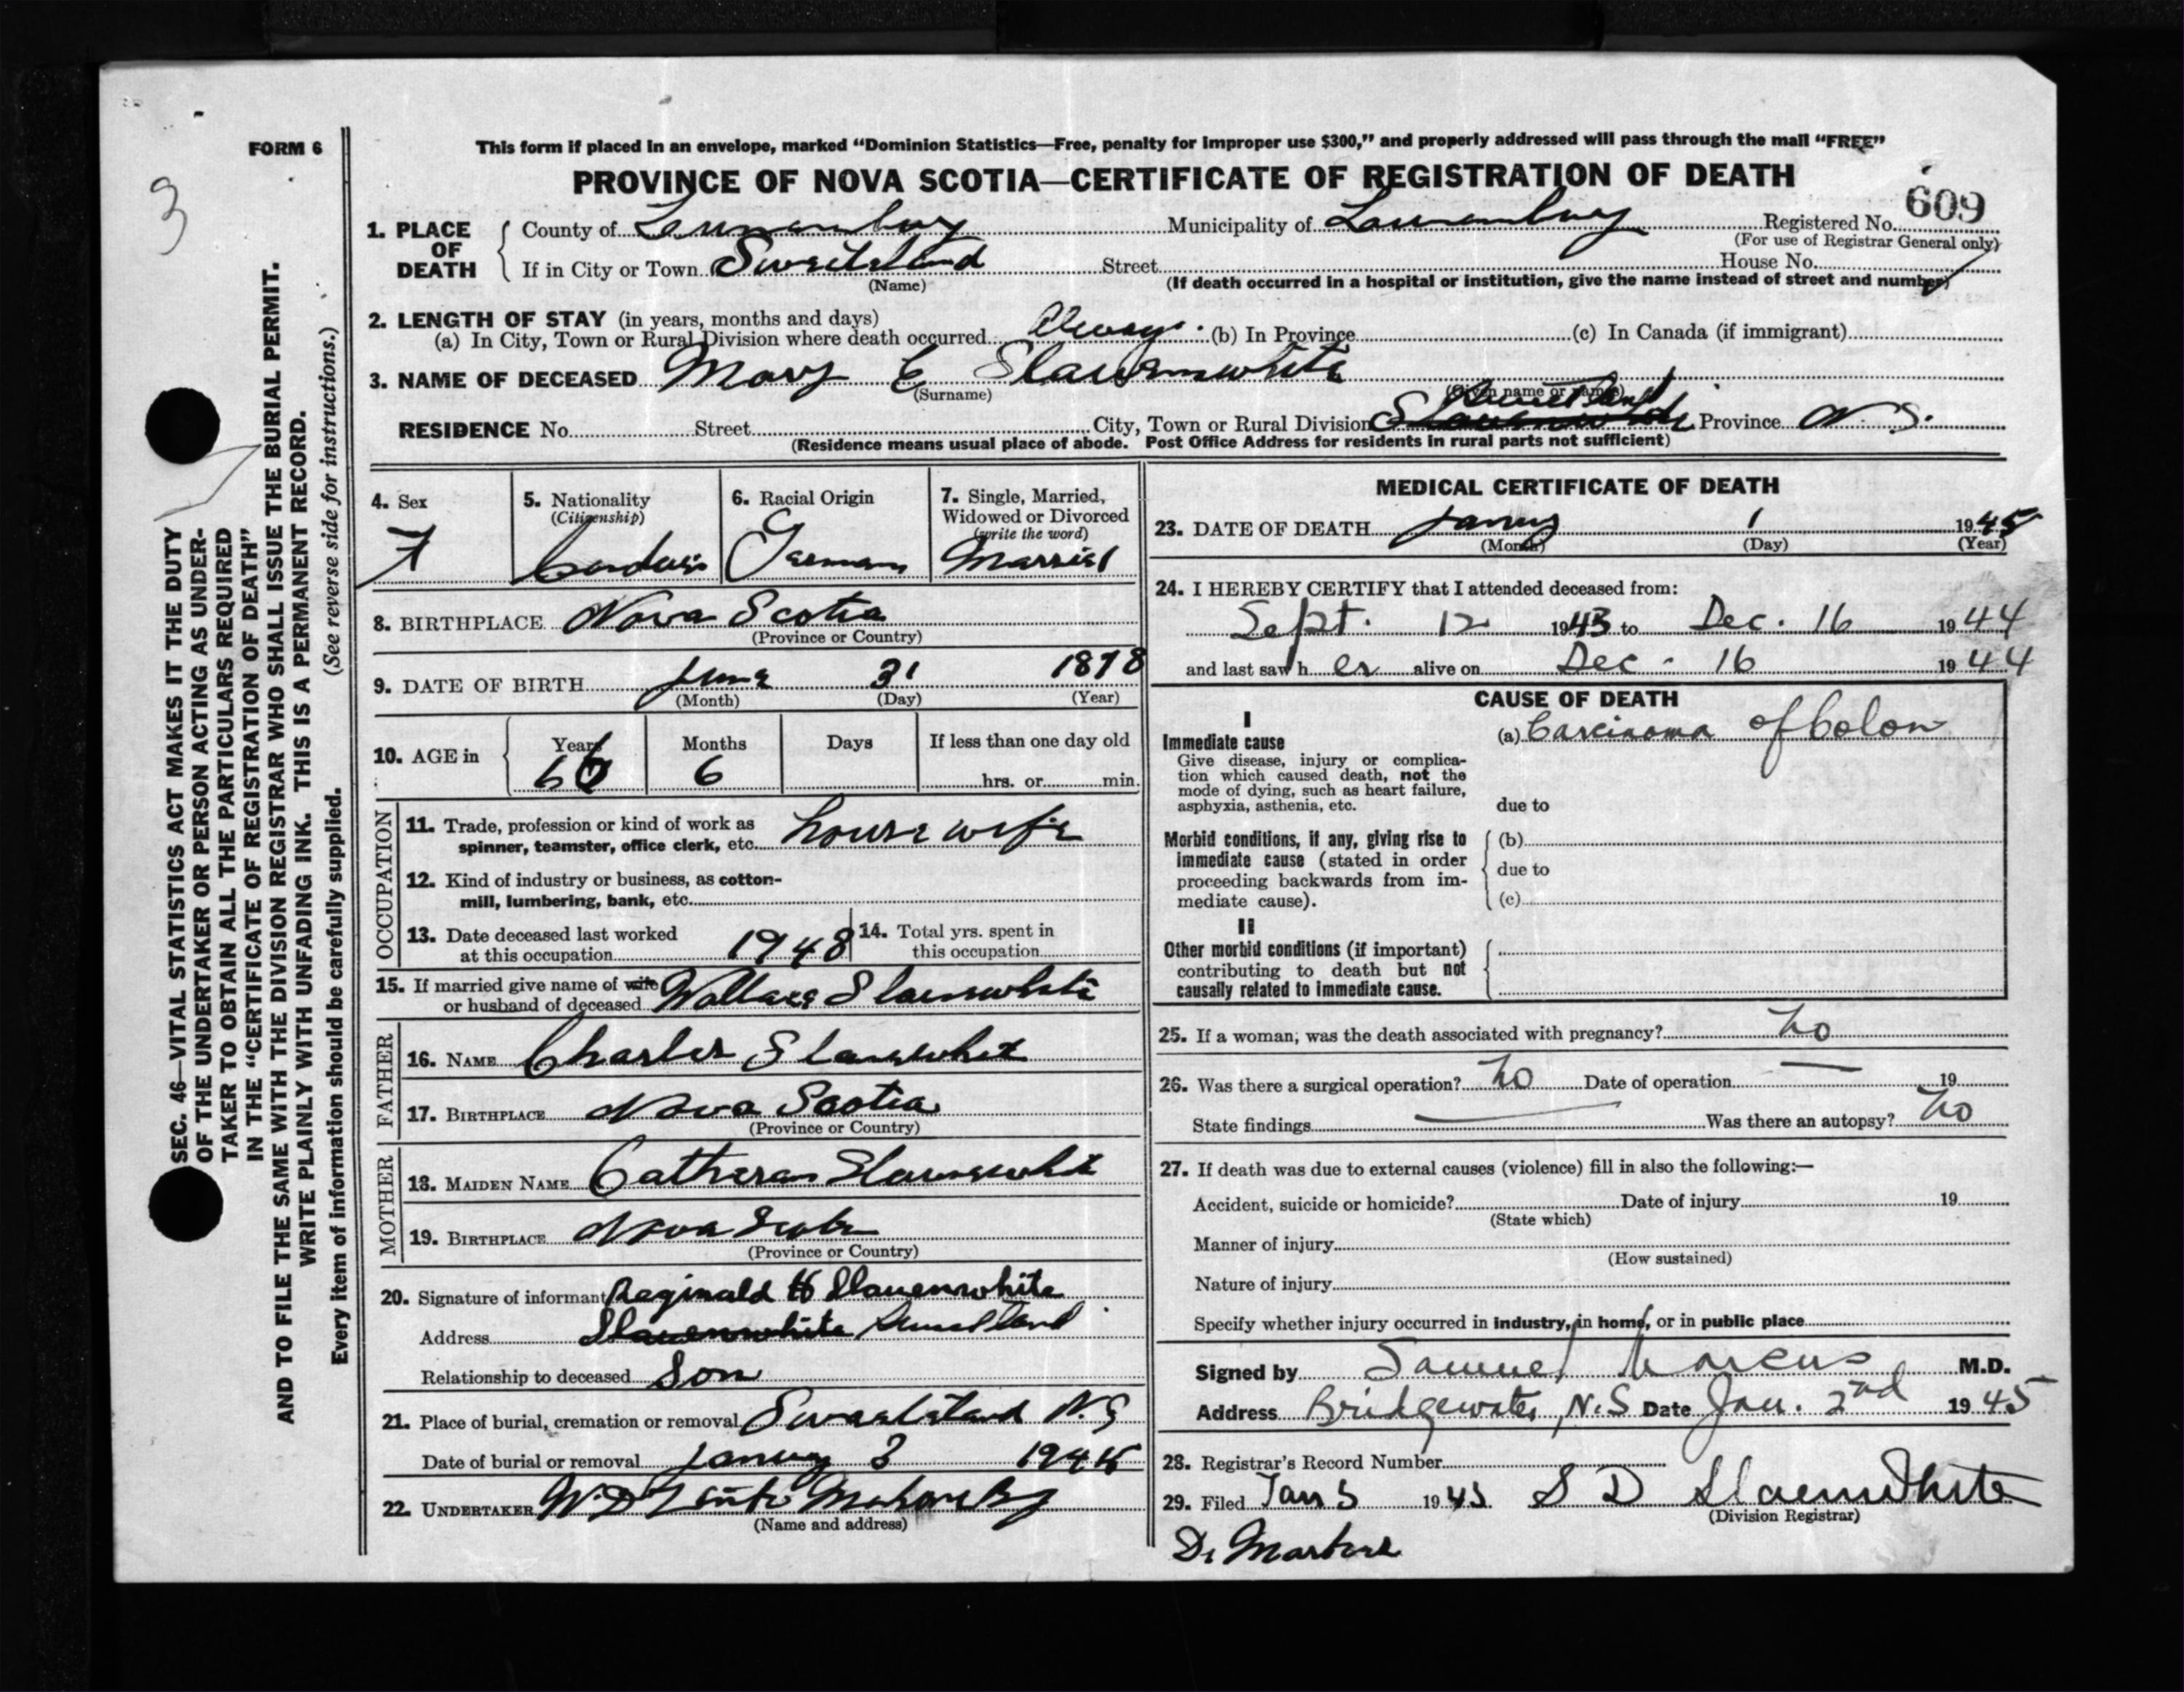 FORM 6
3
This form if placed in an envelope, marked “Dominion Statistics—Free, penalty for improper use $300,” and properly addressed will pass through the mail “FREE”
PROVINCE OF NOVA SCOTIA—CERTIFICATE OF REGISTRATION OF DEATH
609
1. PLACE OF DEATH
County of Lunenburg Municipality of Lunenburg Registered No.
(For use of Registrar General only)
If in City or Town Sweitzland Street House No.
(Name) (If death occurred in a hospital or institution, give the name instead of street and number)
2. LENGTH OF STAY (in years, months and days)
(a) In City, Town or Rural Division where death occurred Always (b) In Province (c) In Canada (if immigrant)
3. NAME OF DECEASED Mary E Slauenwhite
(Surname) (Given name or names)
RESIDENCE No. Street City, Town or Rural Division Province N.S.
(Residence means usual place of abode. Post Office Address for residents in rural parts not sufficient)
4. Sex
F
5. Nationality
(Citizenship)
6. Racial Origin
German
7. Single, Married,
Widowed or Divorced
(write the word)
Married
8. BIRTHPLACE Nova Scotia
(Province or Country)
9. DATE OF BIRTH June 31 1878
(Month) (Day) (Year)
10. AGE in
Years Months Days If less than one day old
66 6 hrs. or min.
OCCUPATION
11. Trade, profession or kind of work as
spinner, teamster, office clerk, etc. house wife
12. Kind of industry or business, as cotton-
mill, lumbering, bank, etc.
13. Date deceased last worked
at this occupation 1948
14. Total yrs. spent in
this occupation
15. If married give name of wife
or husband of deceased Wallace Slauenwhite
FATHER
16. NAME Charles Slauenwhite
17. BIRTHPLACE Nova Scotia
(Province or Country)
MOTHER
18. MAIDEN NAME Catheran Slauenwhite
19. BIRTHPLACE Nova Scotia
(Province or Country)
20. Signature of informant Reginald H Slauenwhite
Address Slauenwhite
Relationship to deceased Son
21. Place of burial, cremation or removal N.S
Date of burial or removal January 3 1945
22. UNDERTAKER Mahone Bay
(Name and address)
MEDICAL CERTIFICATE OF DEATH
23. DATE OF DEATH January 1 1945
(Month) (Day) (Year)
24. I HEREBY CERTIFY that I attended deceased from:
Sept. 12 1943 to Dec. 16 1944
and last saw her alive on Dec. 16 1944
CAUSE OF DEATH
I
Immediate cause
Give disease, injury or complica-
tion which caused death, not the
mode of dying, such as heart failure,
asphyxia, asthenia, etc.
(a) Carcinoma of Colon
due to
Morbid conditions, if any, giving rise to
immediate cause (stated in order
proceeding backwards from im-
mediate cause).
(b)
due to
(c)
II
Other morbid conditions (if important)
contributing to death but not
causally related to immediate cause.
25. If a woman, was the death associated with pregnancy? no
26. Was there a surgical operation? no Date of operation — 19
State findings — Was there an autopsy? no
27. If death was due to external causes (violence) fill in also the following:—
Accident, suicide or homicide? Date of injury 19
(State which)
Manner of injury
(How sustained)
Nature of injury
Specify whether injury occurred in industry, in home, or in public place
Signed by Samuel Marcus M.D.
Address Bridgewater, N.S Date Jan. 2nd 1945
28. Registrar's Record Number
29. Filed Jan 3 1945 S D Slauenwhite
(Division Registrar)
SEC. 46—VITAL STATISTICS ACT MAKES IT THE DUTY
OF THE UNDERTAKER OR PERSON ACTING AS UNDER-
TAKER TO OBTAIN ALL THE PARTICULARS REQUIRED
IN THE “CERTIFICATE OF REGISTRATION OF DEATH”
AND TO FILE THE SAME WITH THE DIVISION REGISTRAR WHO SHALL ISSUE THE BURIAL PERMIT.
WRITE PLAINLY WITH UNFADING INK. THIS IS A PERMANENT RECORD.
Every item of information should be carefully supplied. (See reverse side for instructions.)